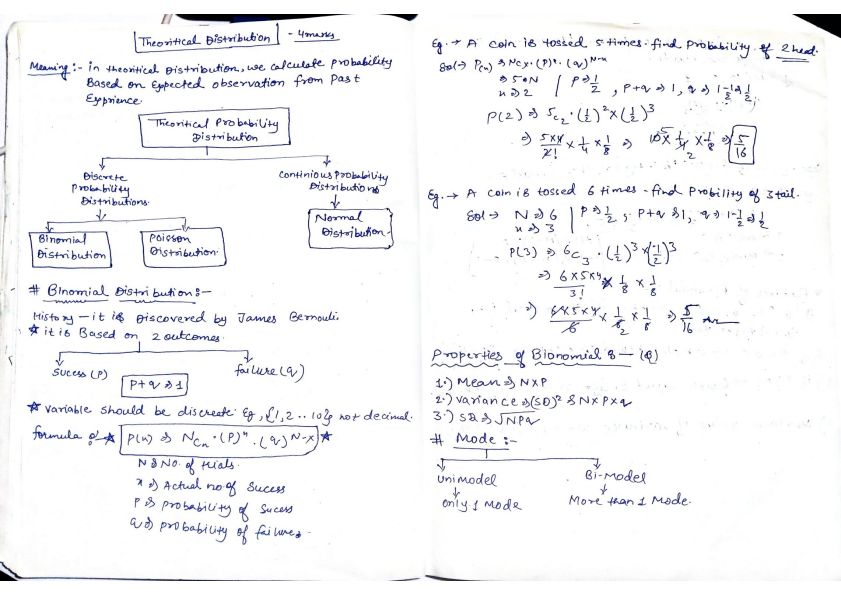 Theoritical Distribution - 4 marks
Meaning :- in theoritical Distribution, we calculate probability
Based on Expected observation from Past
Exprience.
Theoritical Probability
Distribution
Discrete
Probability
Distributions.
Continious Probability
Distributions
Binomial
Distribution
Poisson
Distribution.
Normal
Distribution.
# Binomial Distribution :-
History - it is Discovered by James Bernoulis
★ it is Based on 2 outcomes.
Sucess (P)
failure (q)
P + q ⇒ 1
★ variable should be discreate Eg, {1,2 .. 10} not decimal.
formula ★ P(x) ⇒ NCx · (P)^x · (q)^N-x ★
N ⇒ No. of trials.
x ⇒ Actual no of Sucess
P ⇒ probability of Sucess
q ⇒ probability of failures.
Eg. → A coin is tossed 5 times. find Probability of 2 head.
Sol → P(x) ⇒ NCx · (P)^x · (q)^N-x
⇒ 5 = N | P ⇒ 1/2 , P+q ⇒ 1, q ⇒ 1-1/2 ⇒ 1/2
x ⇒ 2
P(2) ⇒ 5C2 · (1/2)^2 × (1/2)^3
⇒ 5×4/2! × 1/4 × 1/8 ⇒ 10 5 × 1/4 2 × 1/8 ⇒ 5/16
Eg. → A coin is tossed 6 times - find Probility of 3 tail.
Sol → N ⇒ 6 | P ⇒ 1/2 , P+q ⇒ 1, q ⇒ 1-1/2 ⇒ 1/2
x ⇒ 3
P(3) ⇒ 6C3 · (1/2)^3 × (1/2)^3
⇒ 6×5×4/3! × 1/8 × 1/8
⇒ 6×5×4/6 × 1/8 2 × 1/8 ⇒ 5/16
Properties of Bionomial :-
1.) Mean ⇒ N×P
2.) Variance ⇒ (SD)² ⇒ N×P×q
3.) SD ⇒ √NPq
# Mode :-
Unimodel
Bi-Model
only 1 Mode
More than 1 Mode.